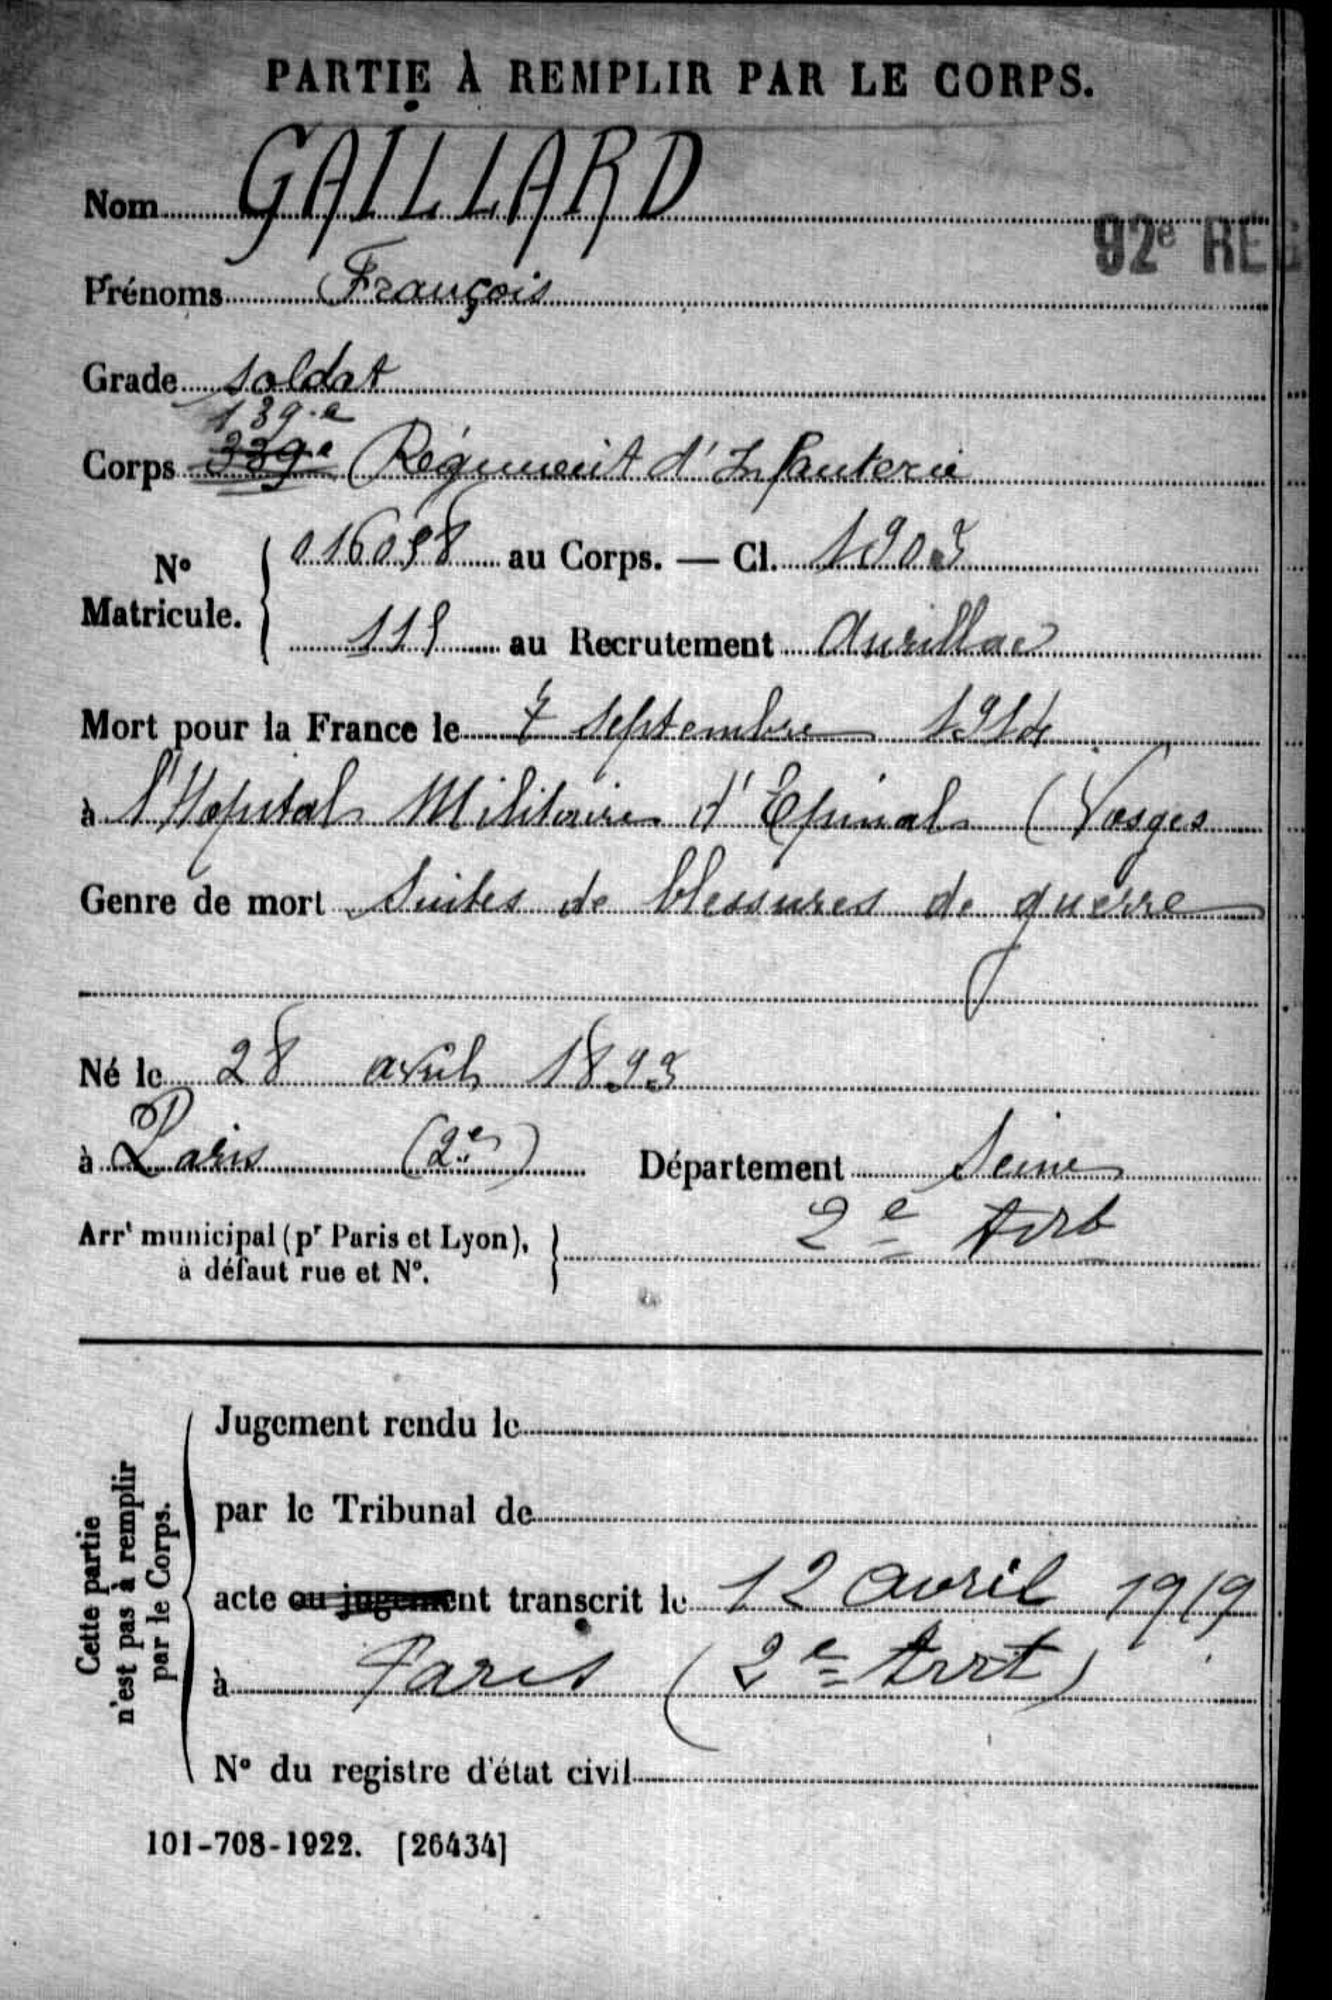 PARTIE À REMPLIR PAR LE CORPS.
Nom GAILLARD
92e RÉG
Prénoms François
Grade soldat
139.e
Corps 339e Régiment d'Infanterie
No Matricule. 016098 au Corps. — Cl. 1903
115 au Recrutement Aurillac
Mort pour la France le 7 septembre 1914
à l'Hopital Militaire d'Epinal (Vosges
Genre de mort Suites de blessures de guerre
Né le 28 avril 1893
à Paris (2e) Département Seine
Arrt municipal (pr Paris et Lyon), à défaut rue et No. 2e Arrt
Cette partie n'est pas à remplir par le Corps.
Jugement rendu le
par le Tribunal de
acte ou jugement transcrit le 12 avril 1919
à Paris (2e Arrt)
No du registre d'état civil
101-708-1922. [26434]